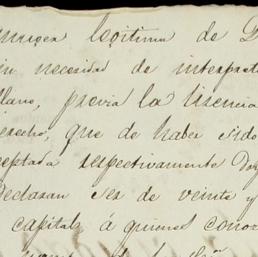 legitima de
necesidad de interprete
llano, previa la licencia
derecho, que de haber sido
ceptada respectivamente Doy
declaran ser de veinte y
capital á quienes conoz